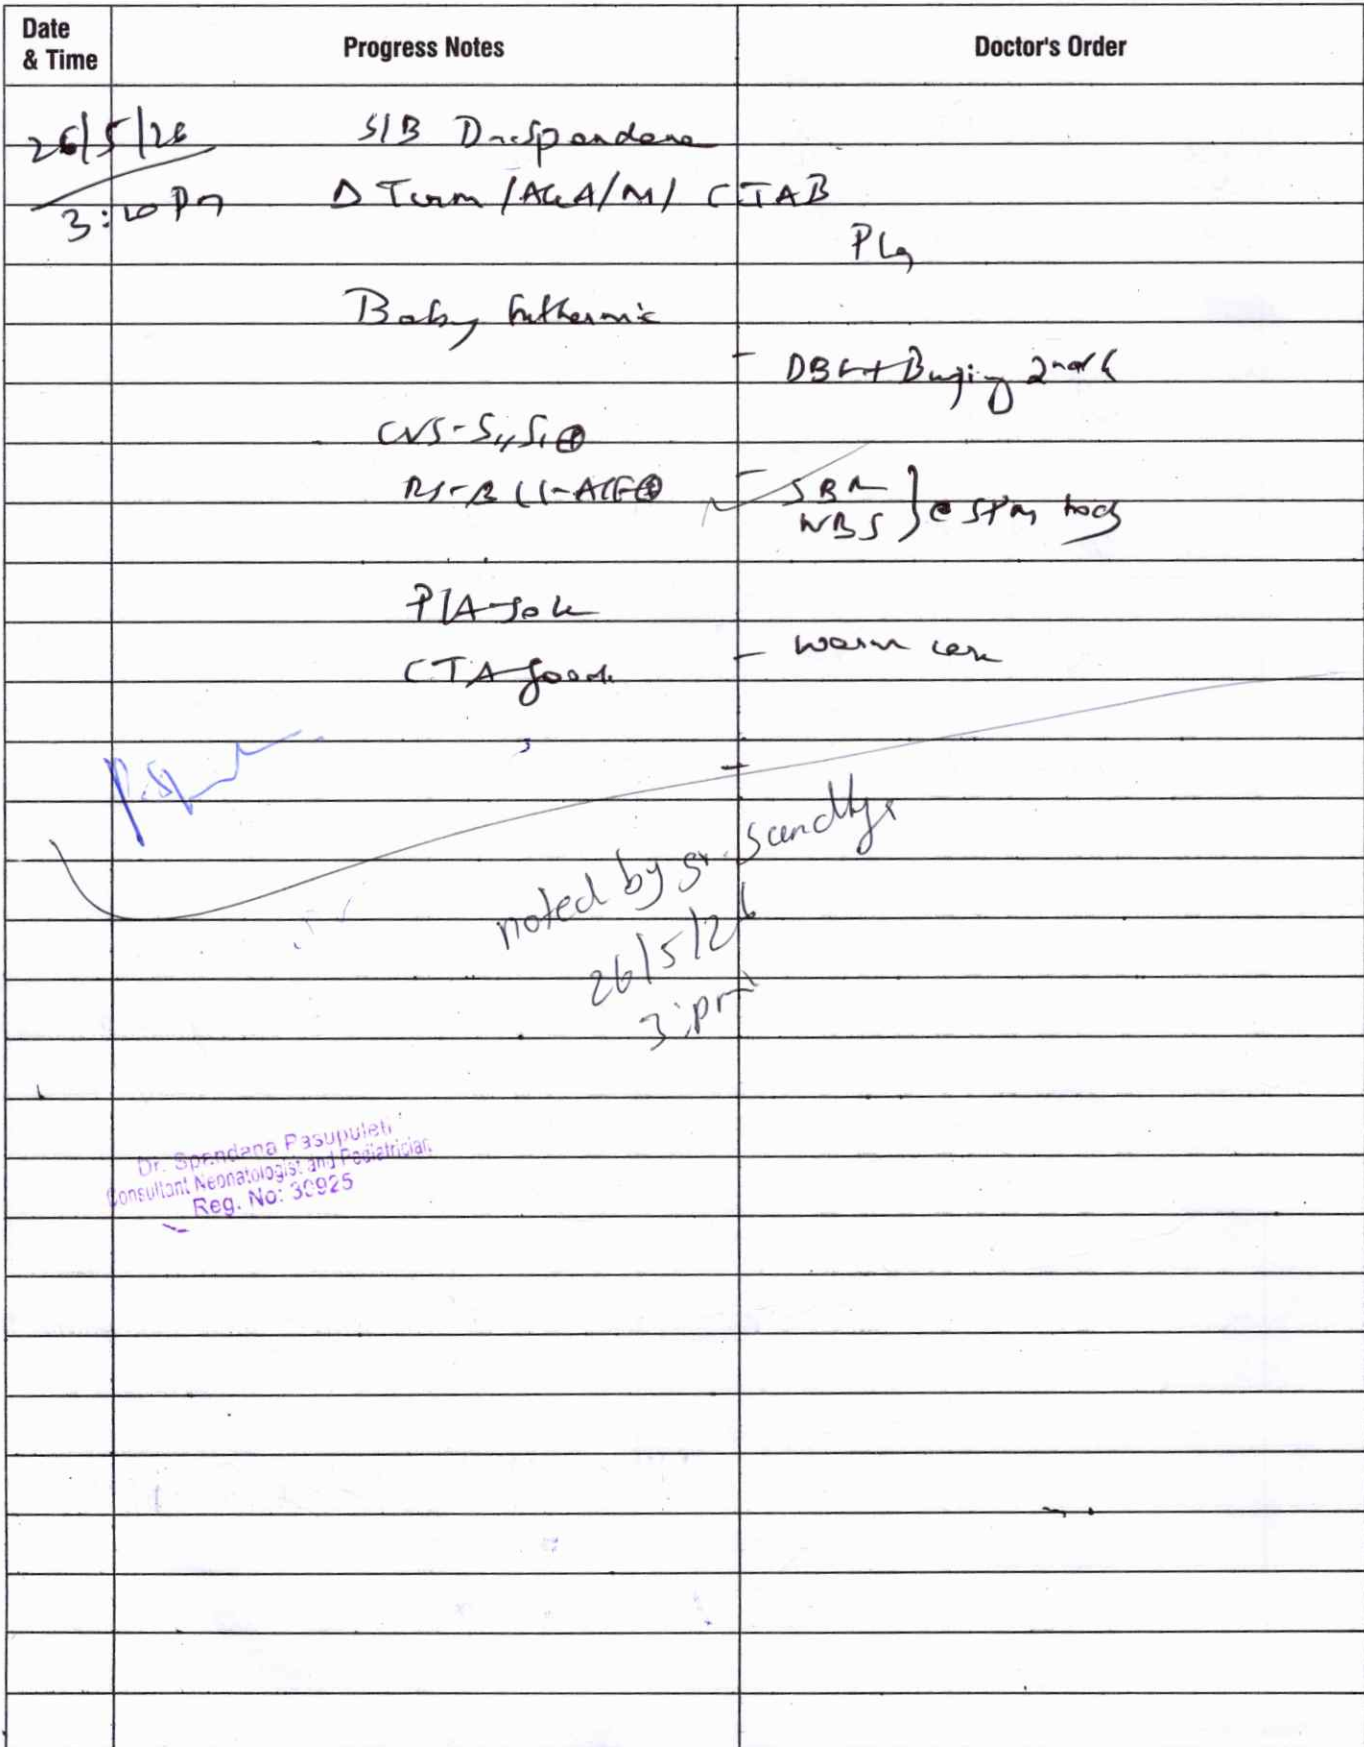 Date & Time
Progress Notes
Doctor's Order
26/5/26
S/B Dr. Spandana
3:10 Pm
Δ Term /AGA/M/ CIAB
Plan
Baby Euthermic
- DBF + Burping 2nd h
CVS - S1, S2 ⊕
RS - B/L - AE ⊕
- SBR
NBS } @ 5pm today
P/A - soft
CTA - good
- warm care
noted by sr. Sandhya
26/5/26
3: pm
Dr. Spandana Pasupuleti
Consultant Neonatologist and Pediatrician
Reg. No: 30925